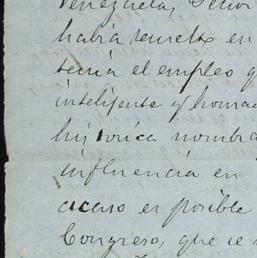 Venezuela, Señor
había resuelto en
tenía el empleo q
inteligente y honrad
histórica nombra
influencia en
acaso es posible
Congreso, que se